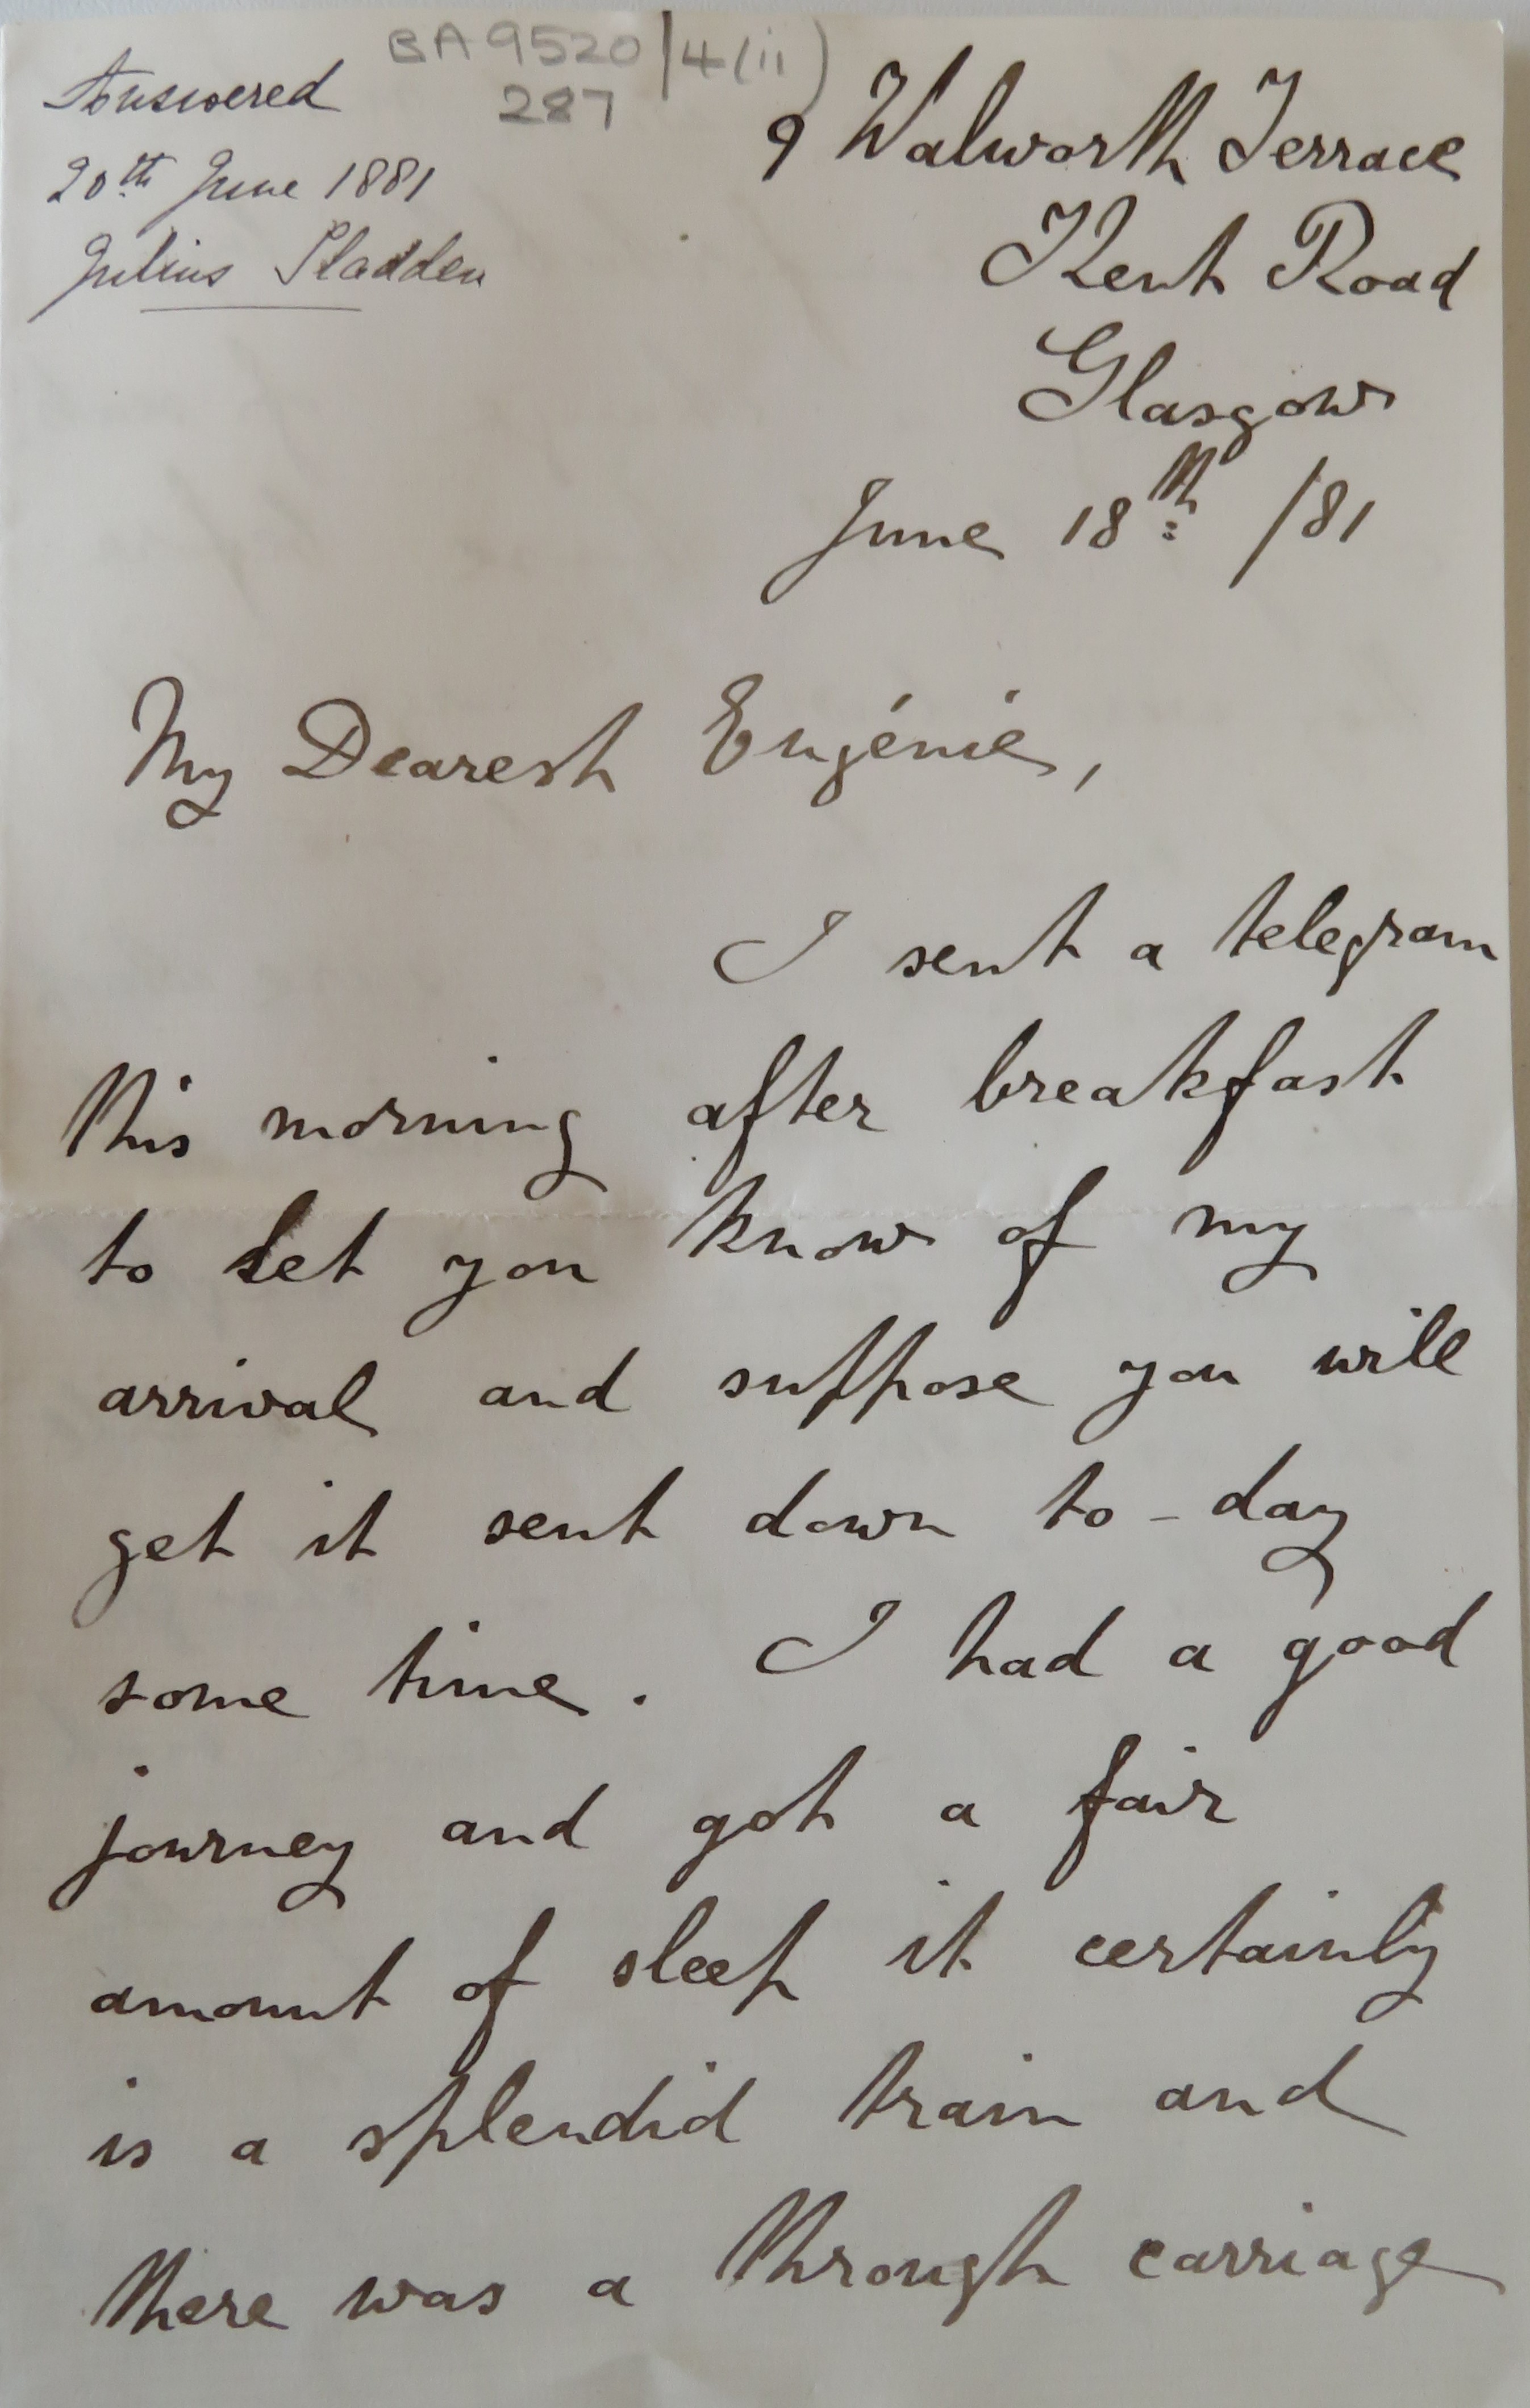 BA9520/4(ii)
287
Answered
20th June 1881
Julius Sladden
9 Walworth Terrace
Kent Road
Glasgow
June 18th /81
My Dearest Eugénie,
I sent a telegram
this morning after breakfast
to let you know of my
arrival and suppose you will
get it sent down to-day
some time. I had a good
journey and got a fair
amount of sleep it certainly
is a splendid train and
there was a through carriage